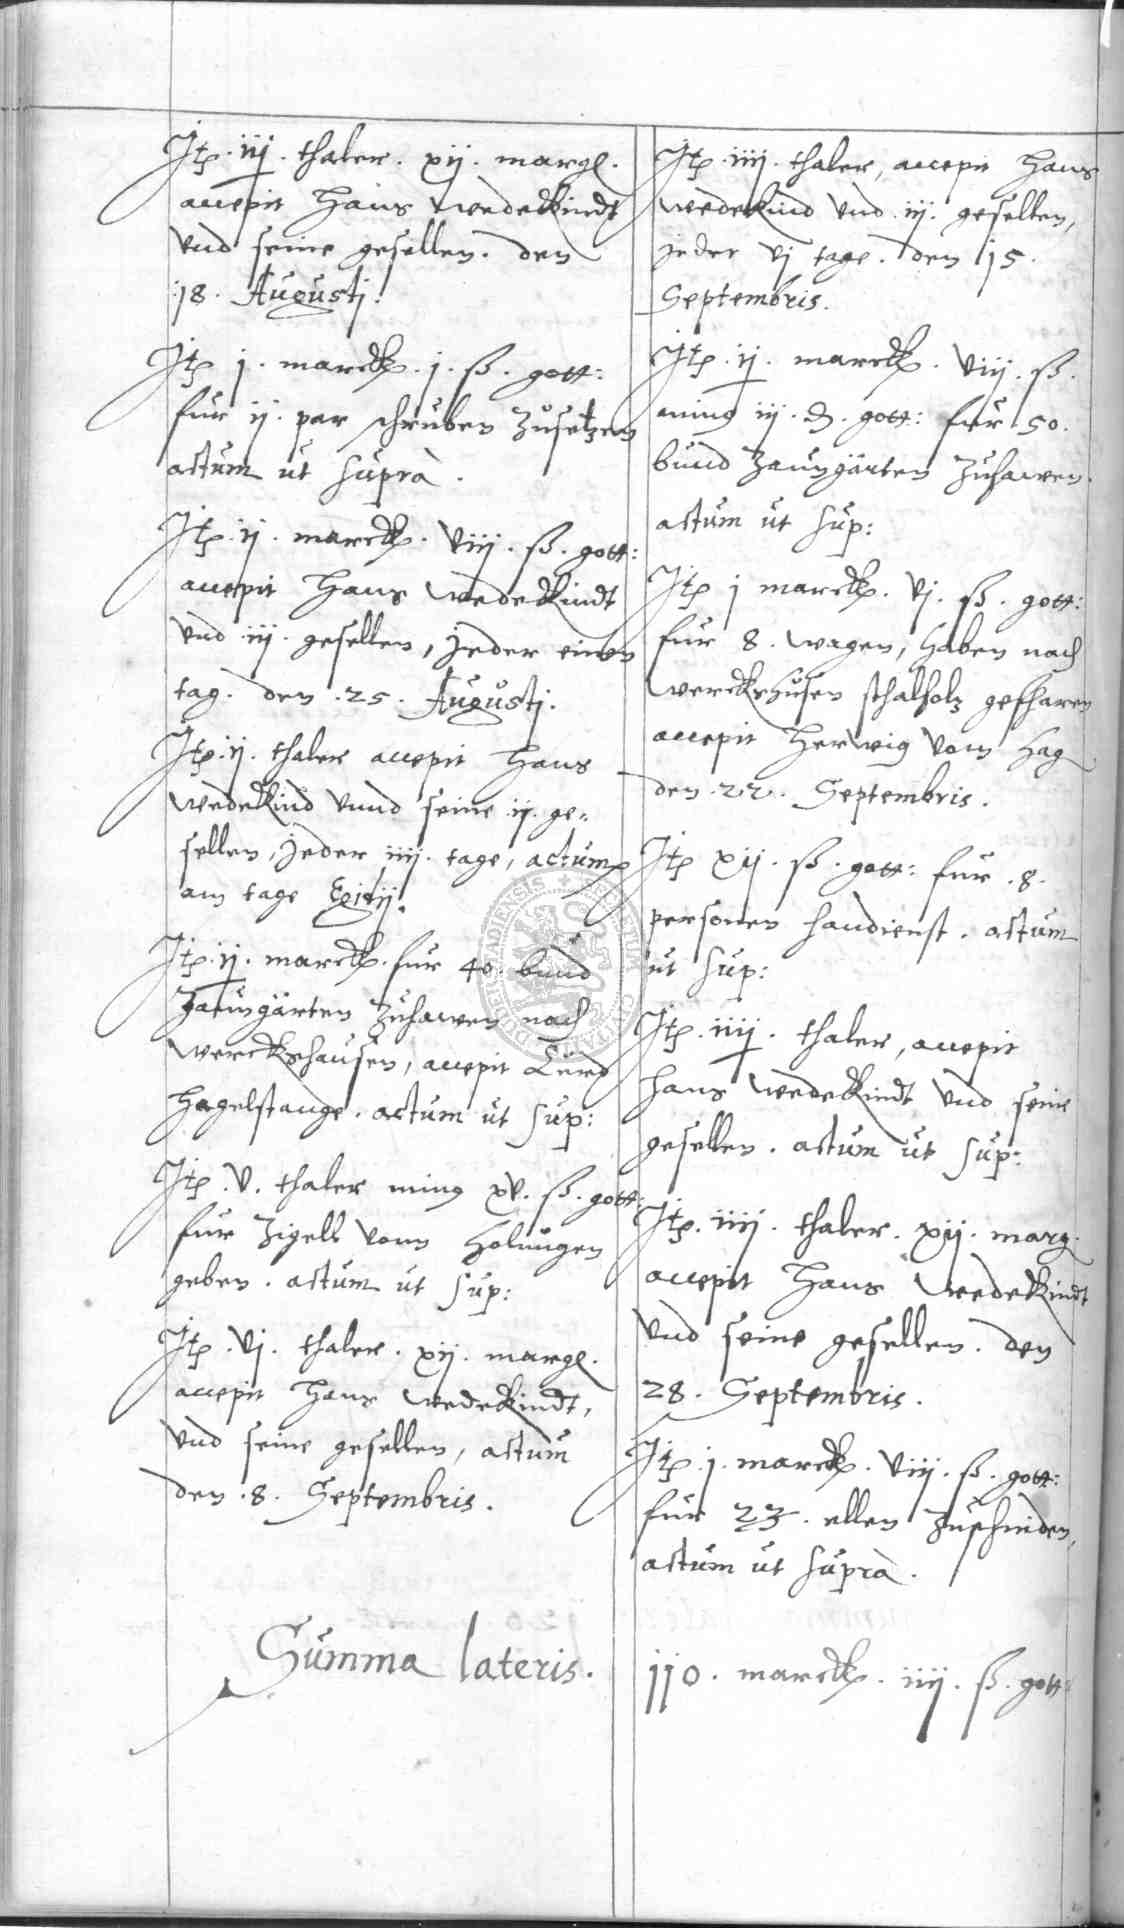 Itz. iij. thaler. xij. margl.
accepit Hans Wedekindt
vnd seine gesellen. den
18. Augustj.
Itz j. marck. j. ß. gott:
fur ij. par schruben zusetzen
actum ut suprà.
Itz. ij. marck. viij. ß. gott:
accepit Hans Wedekindt
vnd iij. gesellen, jeder einen
tag. den .25. Augustj.
Itz. ij. thaler accepit Hans
Wedekind vnnd seine ij. ge=
sellen, jeder iiij. tage, actum
am tage Egidij.
Itz. ij. marck. fur 40. bund
Zaungärten zuhawen nach
Werckshausen, accepit Curd
Hagelstange. actum ut sup:
Itz. v. thaler ming xv. ß. gott:
fur Zigell vonn Holungen
geben. actum ut sup:
Itz. vj. thaler. xij. margl.
accepit Hans Wedekindt,
vnd seine gesellen, actum
den .8. Septembris.
Itz. iiij. thaler, accepit Hans
Wedekind vnd iij. gesellen,
jeder vj tage. den 15.
Septembris.
Itz. ij. marck. viij. ß.
ming iij. d. gott: fur 50.
bund Zaungärten zuhawen.
actum ut sup:
Itz j marck. vj. ß. gott:
fur 8. wagen, haben nach
Werckshusen schalholz gefharen
accepit Herwig vom Hag
den .22. Septembris.
Itz xij. ß. gott: fur .8.
personen handienst. actum
ut sup:
Itz. iiij. thaler, accepit
Hans Wedekindt vnd seine
gesellen. actum ut sup:
Itz. iiij. thaler. xij. marg.
accepit Hans Wedekindt
vnd seine gesellen. den
28. Septembris.
Itz. j. marck. viij. ß. gott:
fur 23. ellen zuschniden,
actum ut suprà.
Summa lateris. 110. marck. iiij. ß. gott: